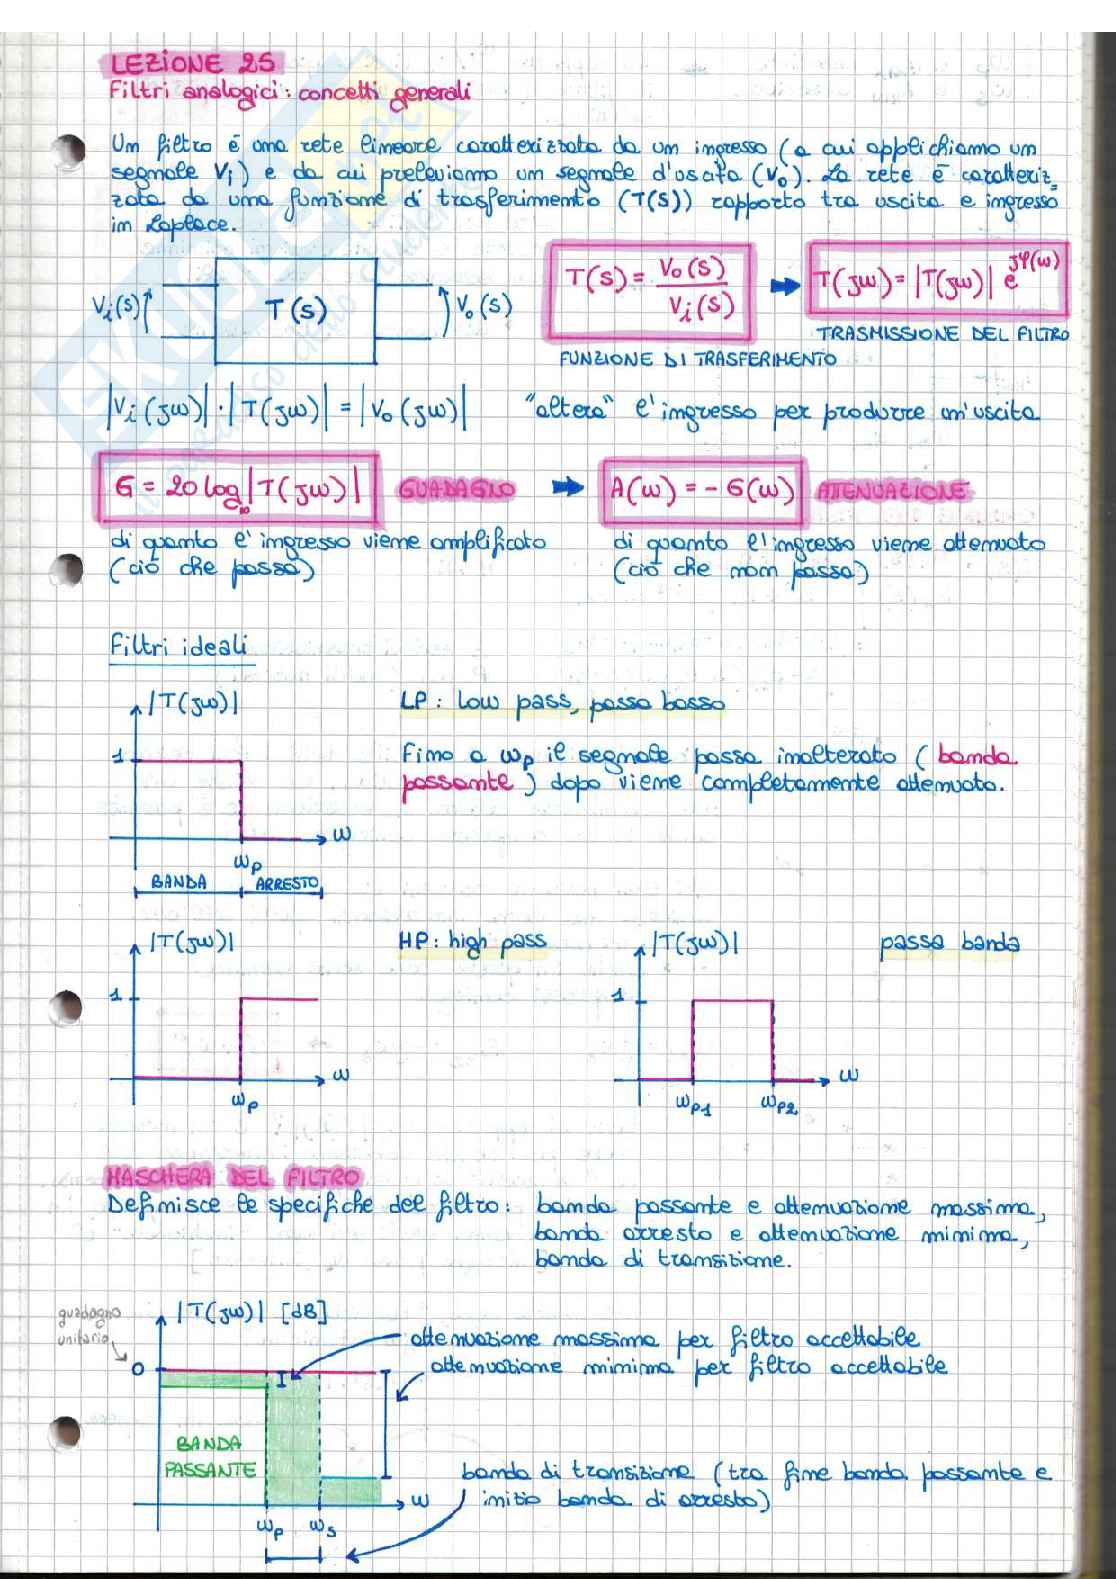 LEZIONE 25
Filtri analogici: concetti generali
Un filtro è una rete lineare caratterizzata da un ingresso (a cui applichiamo un
segnale Vi) e da cui preleviamo un segnale d'uscita (Vo). La rete è caratteriz=
zata da una funzione di trasferimento (T(s)) rapporto tra uscita e ingresso
in Laplace.
Vi(s) T(s) Vo(s)
T(s) = Vo(s) / Vi(s)
T(jω) = |T(jω)| e^jφ(ω)
TRASMISSIONE DEL FILTRO
FUNZIONE DI TRASFERIMENTO
|Vi(jω)| · |T(jω)| = |Vo(jω)| "altera" l'ingresso per produrre un'uscita
G = 20 log10 |T(jω)| GUADAGNO A(ω) = - G(ω) ATTENUAZIONE
di quanto l'ingresso viene amplificato
(ciò che passa)
di quanto l'ingresso viene attenuato
(ciò che non passa)
Filtri ideali
|T(jω)|
1
ω
ωp
BANDA ARRESTO
LP: low pass, passa basso
Fino a ωp il segnale passa inalterato (banda
passante) dopo viene completamente attenuato.
|T(jω)| HP: high pass
1
ω
ωp
|T(jω)| passa banda
1
ω
ωp1 ωp2
MASCHERA DEL FILTRO
Definisce le specifiche del filtro: banda passante e attenuazione massima,
banda arresto e attenuazione minima,
banda di transizione.
guadagno
unitario
|T(jω)| [dB]
0
attenuazione massima per filtro accettabile
attenuazione minima per filtro accettabile
BANDA
PASSANTE
banda di transizione (tra fine banda passante e
inizio banda di arresto)
ω
ωp ωs